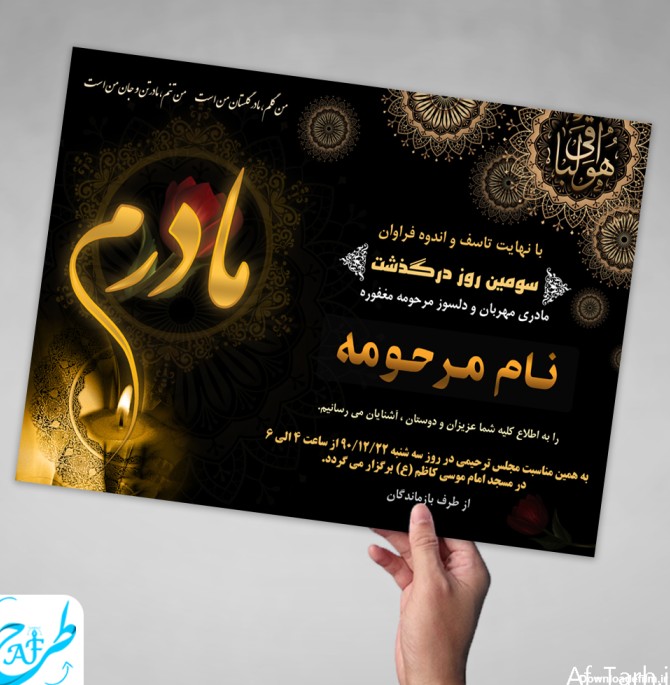 هو الباقی
من گلم، مادر گلستان من است من تنم، مادر تن و جان من است
مادرم
با نهایت تاسف و اندوه فراوان
سومین روز درگذشت
مادری مهربان و دلسوز مرحومه مغفوره
نام مرحومه
را به اطلاع کلیه شما عزیزان و دوستان ، آشنایان می رسانیم.
به همین مناسبت مجلس ترحیمی در روز سه شنبه ۹۰/۱۲/۲۲ از ساعت ۴ الی ۶
در مسجد امام موسی کاظم (ع) برگزار می گردد.
از طرف بازماندگان
طرح
AF
Af-Tarh.i